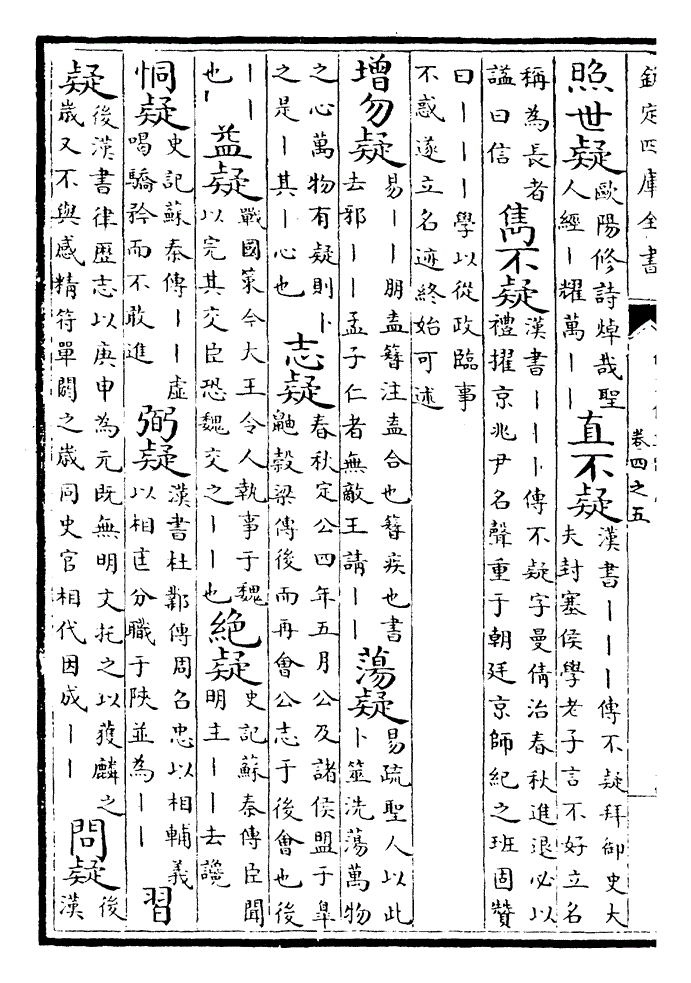 欽定四庫全書
卷四之五
照世疑歐陽修詩焯哉聖
人經丨耀萬丨丨
直不疑漢書丨丨丨傳不疑拜御史大
夫封塞侯學老子言不好立名
稱為長者
諡曰信
雋不疑漢書丨丨丨傳不疑字曼倩治春秋進退必以
禮擢京兆尹名聲重于朝廷京師紀之班固贊
曰丨丨丨學以從政臨事
不惑遂立名迹終始可述
增勿疑易丨丨朋盍簪注盍合也簪疾也書
去邪丨丨孟子仁者無敵王請丨丨
蕩疑易疏聖人以此
卜筮洗蕩萬物
之心萬物有疑則卜
之是丨其丨心也
志疑春秋定公四年五月公及諸侯盟于皋
鼬穀梁傳後而再會公志于後會也後
丨丨
也丨
益疑戰國策今大王令人執事于魏
以完其交臣恐魏交之丨丨也
絶疑史記蘇秦傳臣聞
明主丨丨去讒
恫疑史記蘇秦傳丨丨虛
喝驕矜而不敢進
弼疑漢書杜鄴傳周召忠以相輔義
以相匡分職于陜並為丨丨
習
疑後漢書律歷志以庚申為元既無明文托之以獲麟之
歲又不與感精符單閼之歲同史官相代因成丨丨
問疑後
漢